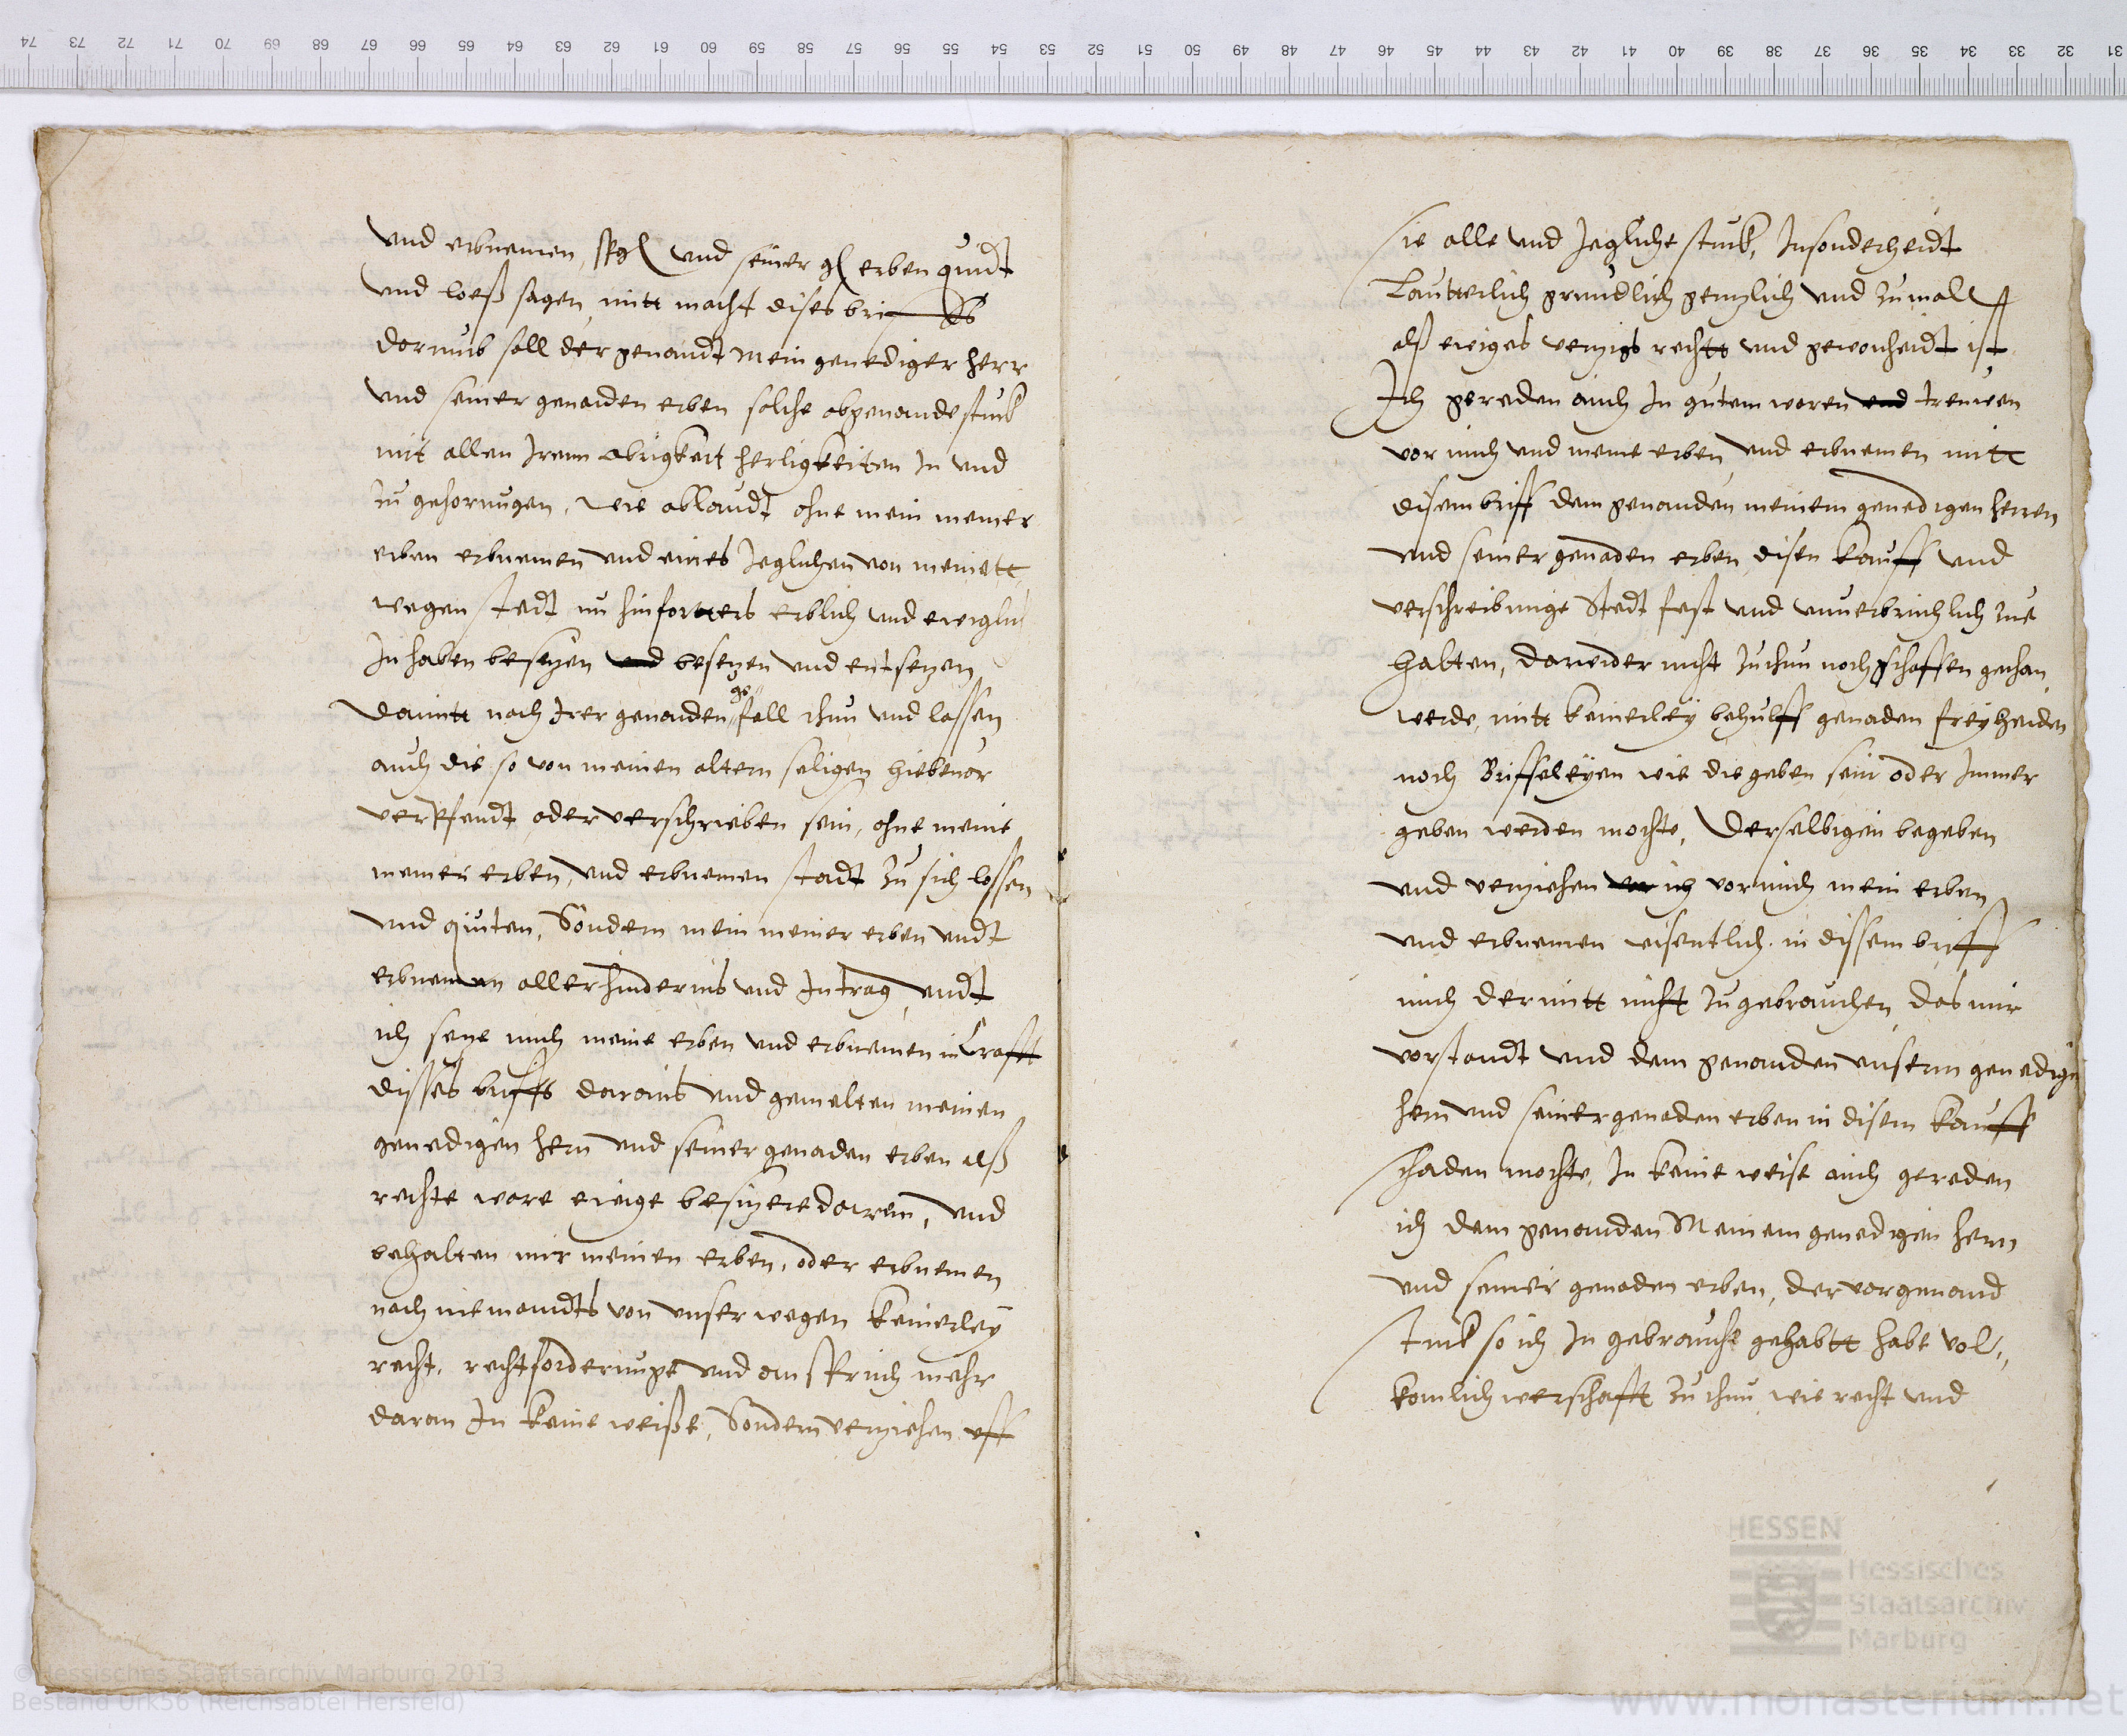 und erbnemen, sfg und seiner g erben quidt
und loeß sagen, mitt macht dises briffs
dorumb soll der genandt mein genediger herr
und seiner genaden erben solche obgenande stuck
mit allen Irenn obrigkeit herligkeiten In und
zu gehorungen, wie oblaudt ohne mein meiner
erben erbnemen und eines Jeglichen von meinett
wegen stedt nu hinfortters erblich und ewiglich
In haben besitzen und besetzen und entsetzen
damitt nach Irer genaden gefall thun und lassen
auch die so von meinen altern seligen hiebevor
verpfendt oder verschrieben sein, ohne meine
meiner erben, und erbnemen stadt zu sich lossen
und quiten, Sondern mein meiner erben undt
erbnemen aller hindernis und Intrag, undt
ich setze mich meine erben und erbnemen in Crafft
disses briffs daraus und gemelten meinen
genedigen hern und seiner genaden erben alß
rechte ware ewige besitzere darein, und
behalten mir meinen erben, oder erbnemen
noch niemandts von unser wegen keinerley
recht, rechtforderunge und anspruch mehr
daran In keine weiße, Sondern verziehen uff
sie alle und Jegliche stuck, Insonderheidt
Lautterlich grundlich gentzlich und zumall
alß ewiges verzigs rechts und gewonheidt ist
Ich gereden auch In gutem waren und treuwen
vor mich und meine erben und erbnemen mitt
disem briff dem genanden meinem genedigen herren
und seiner genaden erben, disen kauff und
verschreibunge Stedt fest und unverbruchlich zue
halten, darwider nicht zu thun noch schaffen gethan
werde, mitt keinerley behulff genaden freyheiden
noch Briffeleyen wie die geben sein oder Immer
geben werden mochte, Derselbigen begeben
und verziehen ich vor mich mein erben
und erbnemen wisentlich in dissem briff
mich dermitt nicht zu gebrauchen, das mir
vorstandt und dem genanden unserm genedigen
hern und seiner genaden erben in disem kauff
schaden mochte, In keine weise auch gereden
ich dem genanden Meinem genedigen hern
und seiner genaden erben, der vorgenand
stuck so ich In gebrauche gehabtt habe vol,,
komlich werschafft zu thun wie recht und
HESSEN
Hessisches
Staatsarchiv
Marburg
©Hessisches Staatsarchiv Marburg 2013
Bestand Urk56 (Reichsabtei Hersfeld)
www.monasterium.net